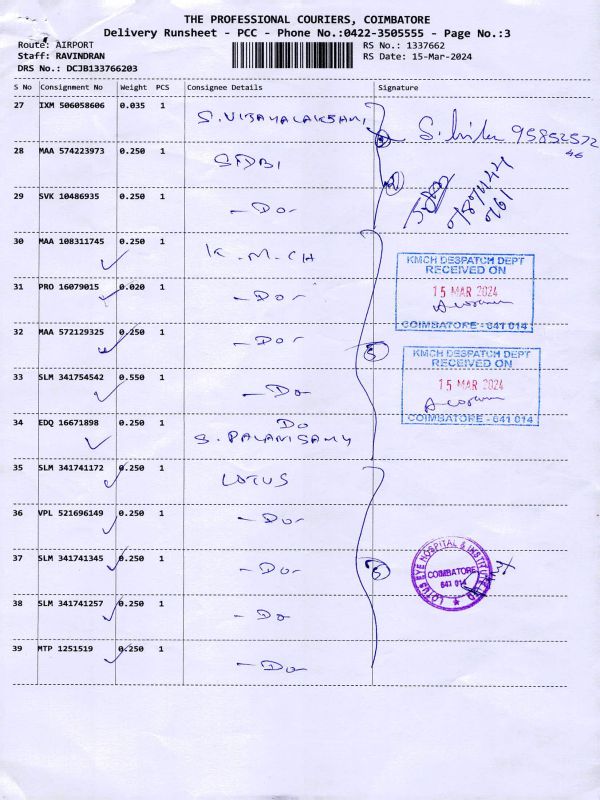 THE PROFESSIONAL COURIERS, COIMBATORE
Delivery Runsheet - PCC - Phone No.:0422-3505555 - Page No.:3
Route: AIRPORT RS No.: 1337662
Staff: RAVINDRAN RS Date: 15-Mar-2024
DRS No.: DCJB133766203
S No Consignment No Weight PCS Consignee Details Signature
27 IXM 506058606 0.035 1 S. VIJAYALAKSHMI 95852572
46
28 MAA 574223973 0.250 1 SIDBI
29 SVK 10486935 0.250 1 - Do -
30 MAA 108311745 0.250 1 K.M.CH
KMCH DESPATCH DEPT
RECEIVED ON
15 MAR 2024
COIMBATORE - 641 014
31 PRO 16079015 0.020 1 - Do -
32 MAA 572129325 0.250 1 - Do -
5
KMCH DESPATCH DEPT
RECEIVED ON
15 MAR 2024
COIMBATORE - 641 014
33 SLM 341754542 0.550 1 - Do -
34 EDQ 16671898 0.250 1 Do
S. PALANISAMY
35 SLM 341741172 0.250 1 LOTUS
36 VPL 521696149 0.250 1 - Do -
37 SLM 341741345 0.250 1 - Do -
5
LOTUS EYE HOSPITAL & INSTITUTE LTD
COIMBATORE
641 014
38 SLM 341741257 0.250 1 - Do
39 MTP 1251519 0.250 1 - Do -